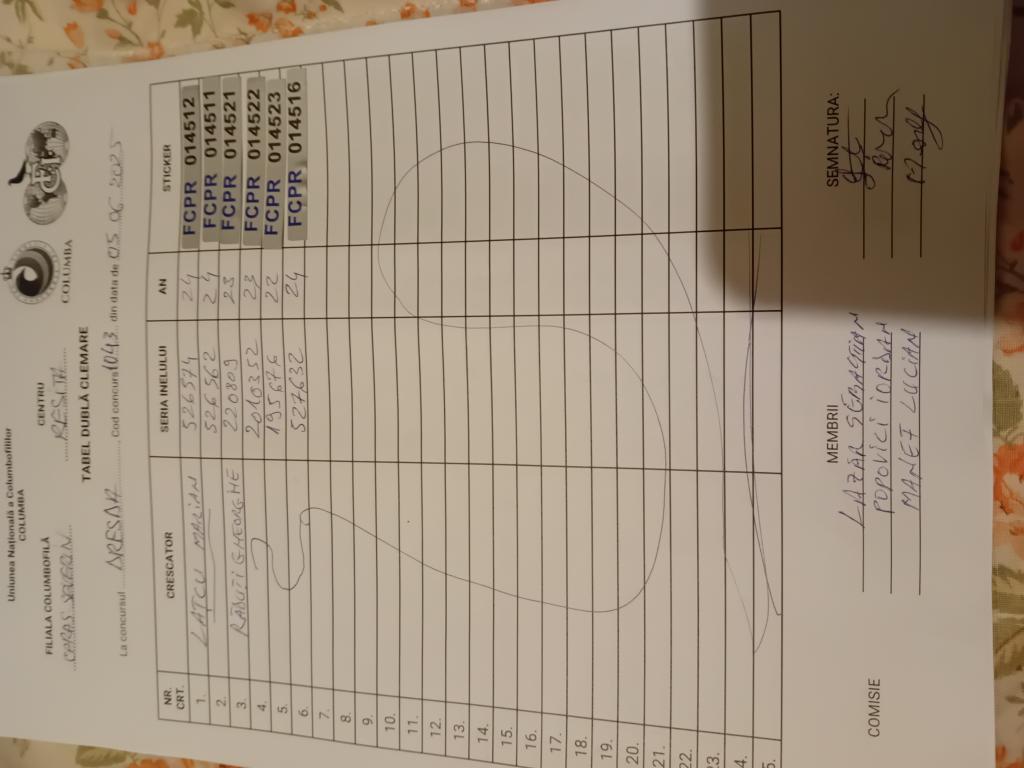 Uniunea Națională a Columbofililor
COLUMBA
FILIALA COLUMBOFILĂ
CARAS SEVERIN
CENTRU
RESITA
COLUMBA
TABEL DUBLĂ CLEMARE
La concursul DRESDA, Cod concurs 1043 din data de 05 06 2025
NR. CRT. CRESCATOR SERIA INELULUI AN STICKER
1. LAȚCU MARIAN 526574 24 FCPR 014512
2. 526562 24 FCPR 014511
3. RĂDUȚI GHEORGHE 220809 23 FCPR 014521
4. 2010352 23 FCPR 014522
5. 195676 22 FCPR 014523
6. 527632 24 FCPR 014516
7.
8.
9.
10.
11.
12.
13.
14.
15.
16.
17.
18.
19.
20.
21.
22.
23.
4.
5.
COMISIE
MEMBRII
SEMNATURA:
LAZĂR SEBASTIAN
POPOVICI IORDAN
MANEF LUCIAN